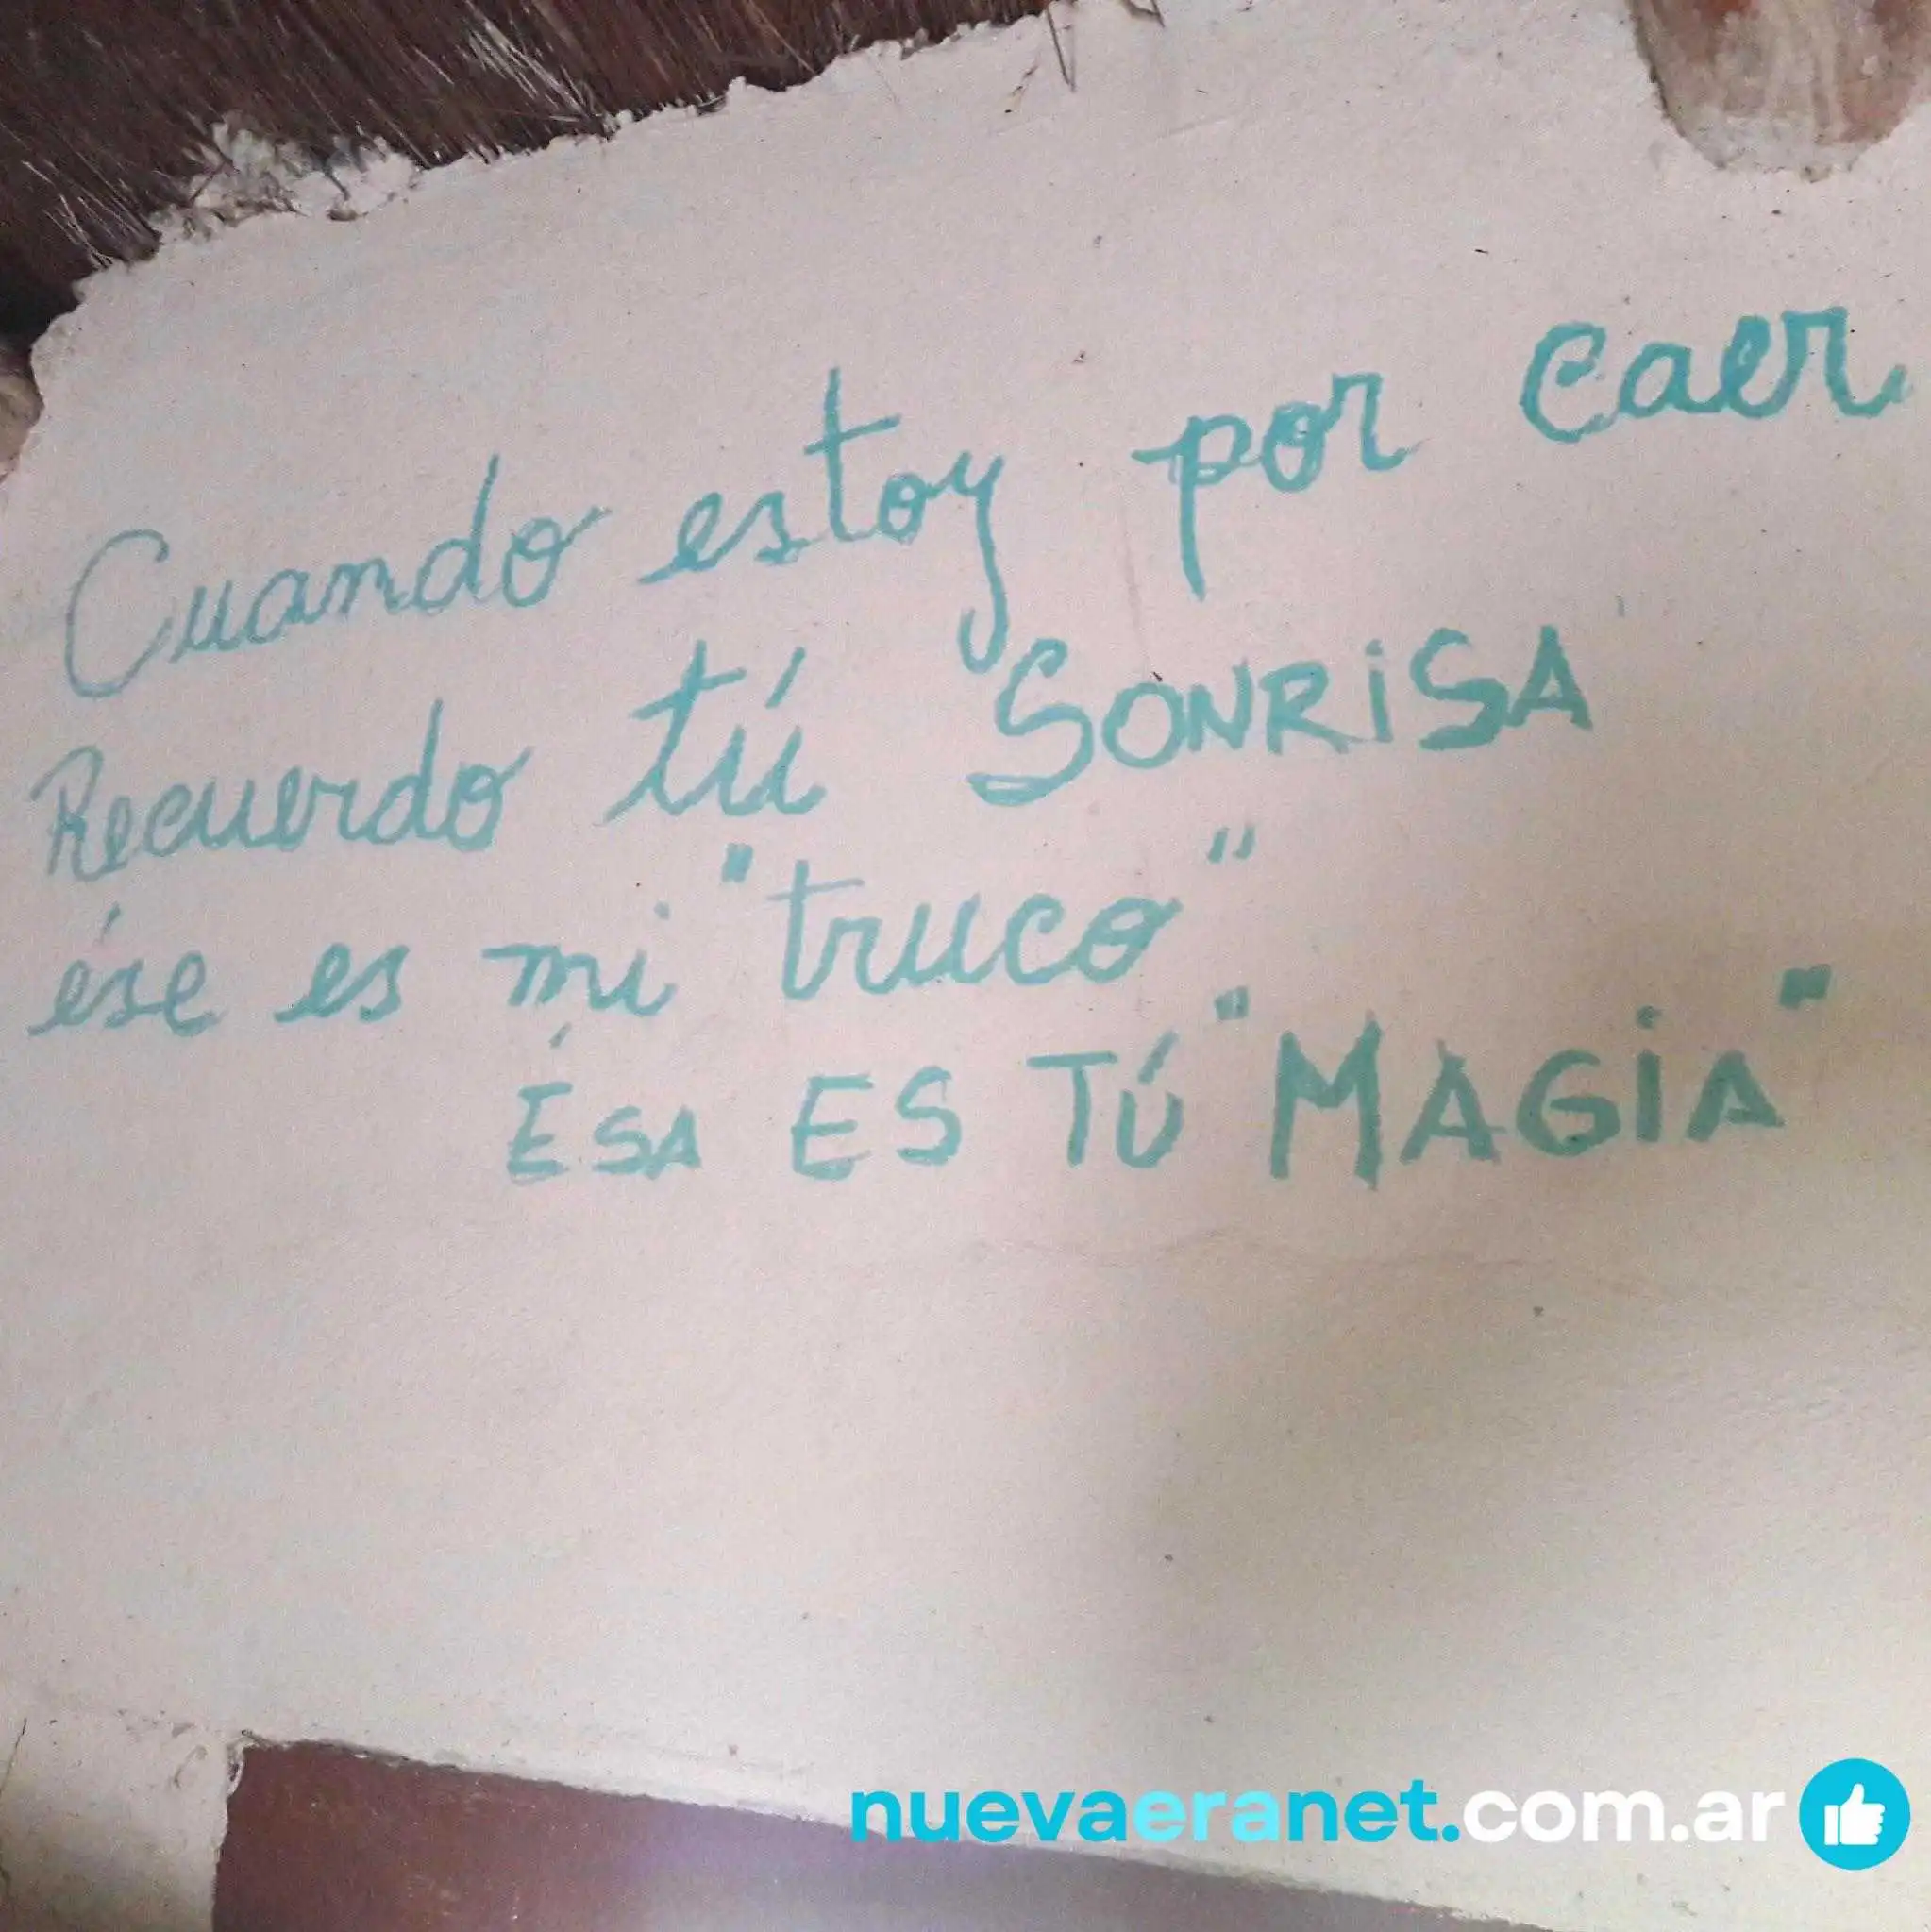 Cuando estoy por caer
Recuerdo tú SONRISA
ése es mi "truco"
ÉSA ES TÚ "MAGIA"
nuevaeranet.com.ar